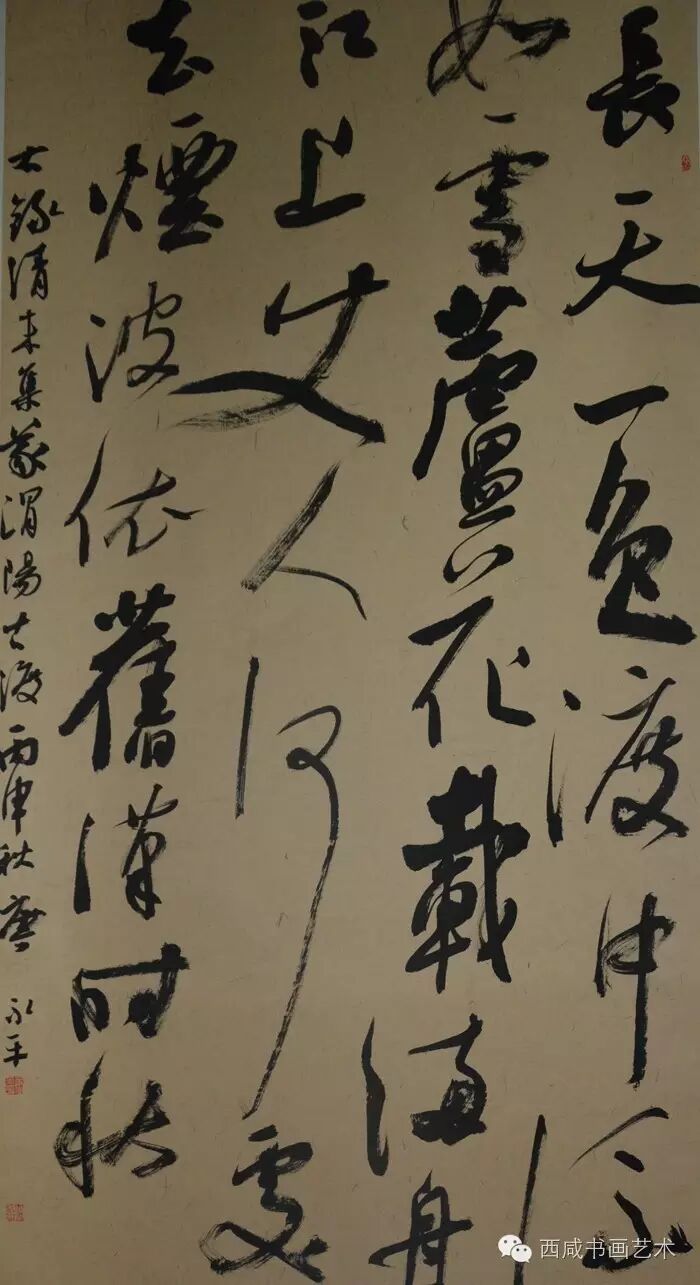 長天一色渡中流
如雪蘆花載滿舟
江上丈人何處
去煙波依舊漢時秋
右錄清朱集義渭陽古渡丙申秋永平
西咸书画艺术